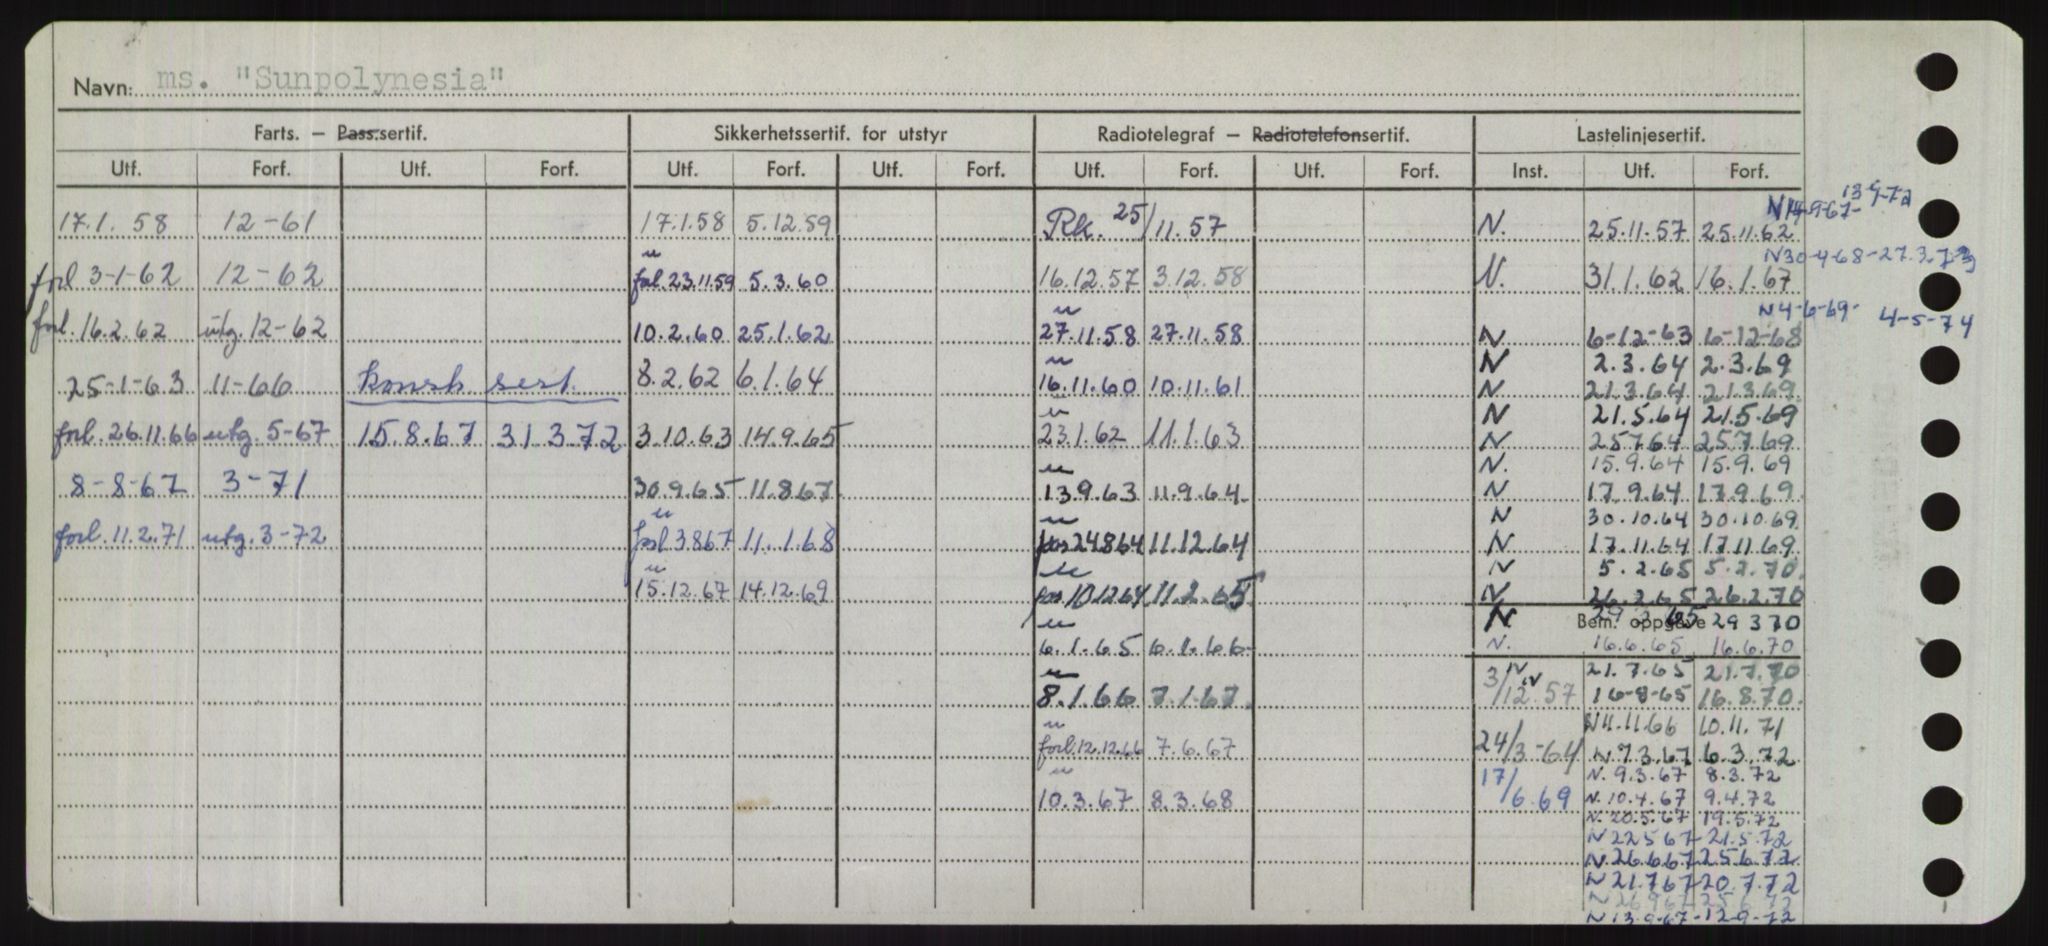 Navn: ms. "Sunpolynesia"
Farts. — Pass.sertif. Sikkerhetssertif. for utstyr Radiotelegraf — Radiotelefonsertif. Lastelinjesertif.
Utf. Forf. Utf. Forf. Utf. Forf. Utf. Forf. Utf. Forf. Utf. Forf. Inst. Utf. Forf.
N 14-9-67- 13-9-72
17.1. 58 12-61 17.1.58 5.12.59 Rk. 25/11.57 N. 25.11.57 25.11.62
N 30-4-68-27.3.73
forl 3-1-62 12-62 " forl. 23.11.59 5.3.60 16.12.57 3.12.58 N. 31.1.62 16.1.67
N 4-6-69- 4-5-74
forl. 16.2.62 utg. 12-62 10.2.60 25.1.62 " 27.11.58 27.11.58 N 6-12-63 6-12-68
N 2.3.64 2.3.69
25-1-63 11-66 konsk sert. 8.2.62 6.1.64 " 16.11.60 10.11.61 N 21.3.64 21.3.69
N 21.5.64 21.5.69
forl. 26.11.66 utg. 5-67 15.8.67 31.3.72 3.10.63 14.9.65 " 23.1.62 11.1.63 N 25.7.64 25.7.69
N. 15.9.64 15.9.69
8-8-67 3-71 30.9.65 11.8.67 " 13.9.63 11.9.64 N 17.9.64 17.9.69
N 30.10.64 30.10.69
forl. 11.2.71 utg. 3-72 " forl 3.8.67 11.1.68 " 24.8.64 11.12.64 N 17.11.64 17.11.69
N 5.2.65 5.2.70
" 15.12.67 14.12.69 " 10.12.64 11.2.65 N 26.2.65 26.2.70
N Bem. oppgave 29.3.65 29.3.70
" 6.1.65 6.1.66 N. 16.6.65 16.6.70
N 21.7.65 21.7.70
" 8.1.66 7.1.67 3/12.57 N 16-8-65 16.8.70
N 11.11.66 10.11.71
" forl. 12.12.66 7.6.67 24/3-64 N 7.3.67 6.3.72
N. 9.3.67 8.3.72
" 10.3.67 8.3.68 17/6.69 N. 10.4.67 9.4.72
N. 20.5.67 19.5.72
N 22.5.67-21.5.72
N 26.6.67 25.6.72
N 21.7.67-20.7.72
N 13.9.67-12-9-72